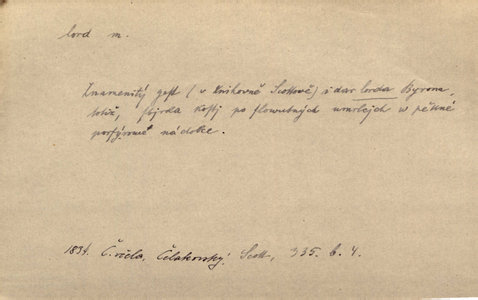 lord m.
Znamenitý gest (v knihovně Scottově) i dar lorda Byrona,
totiž, sbjrka kostj po slowutných umrlcjch w pěkné
porfýrowé nádobě.
1834. Č. včela, Čelakovský: Scott, 335. b. 4.